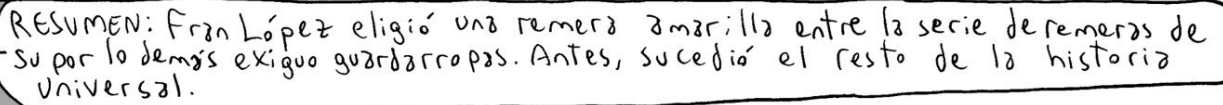 RESUMEN: Fran López eligió una remera amarilla entre la serie de remeras de
su por lo demás exiguo guardarropas. Antes, sucedió el resto de la historia
universal.